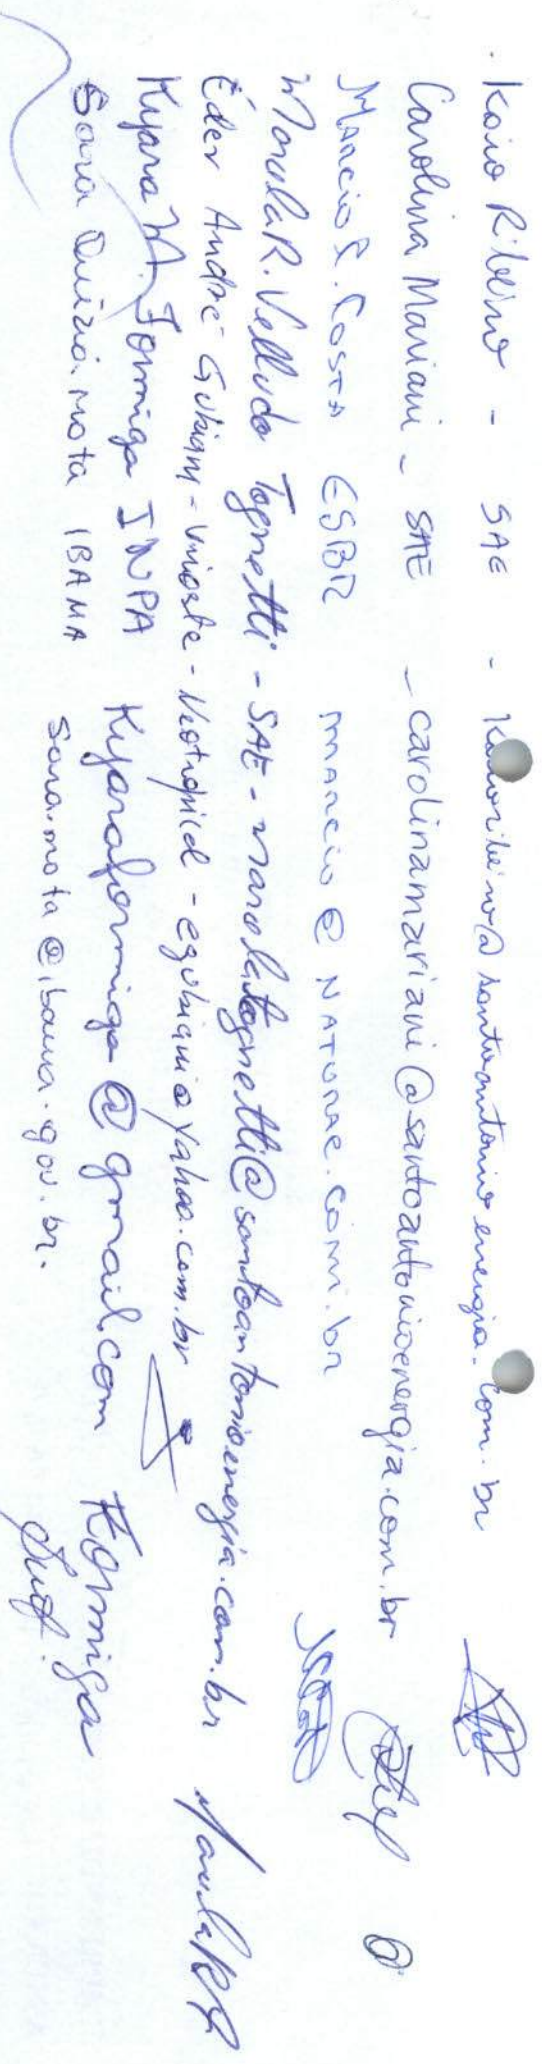 Kaio Ribeiro - SAE - kaioribeiro@santoantonioenergia.com.br
Carolina Mariani - SAE - carolinamariani@santoantonioenergia.com.br
Marcio C. Costa ESBR marcio@naturae.com.br
Marcela R. Velludo Tognetti - SAE - marcelatognetti@santoantonioenergia.com.br
Éder André Gubiani - Unioeste - Neotropical - egubiani@yahoo.com.br
Kyara M. Formiga INPA Kyaraformiga@gmail.com Formiga
Sara Quizia Mota IBAMA sara.mota@ibama.gov.br.